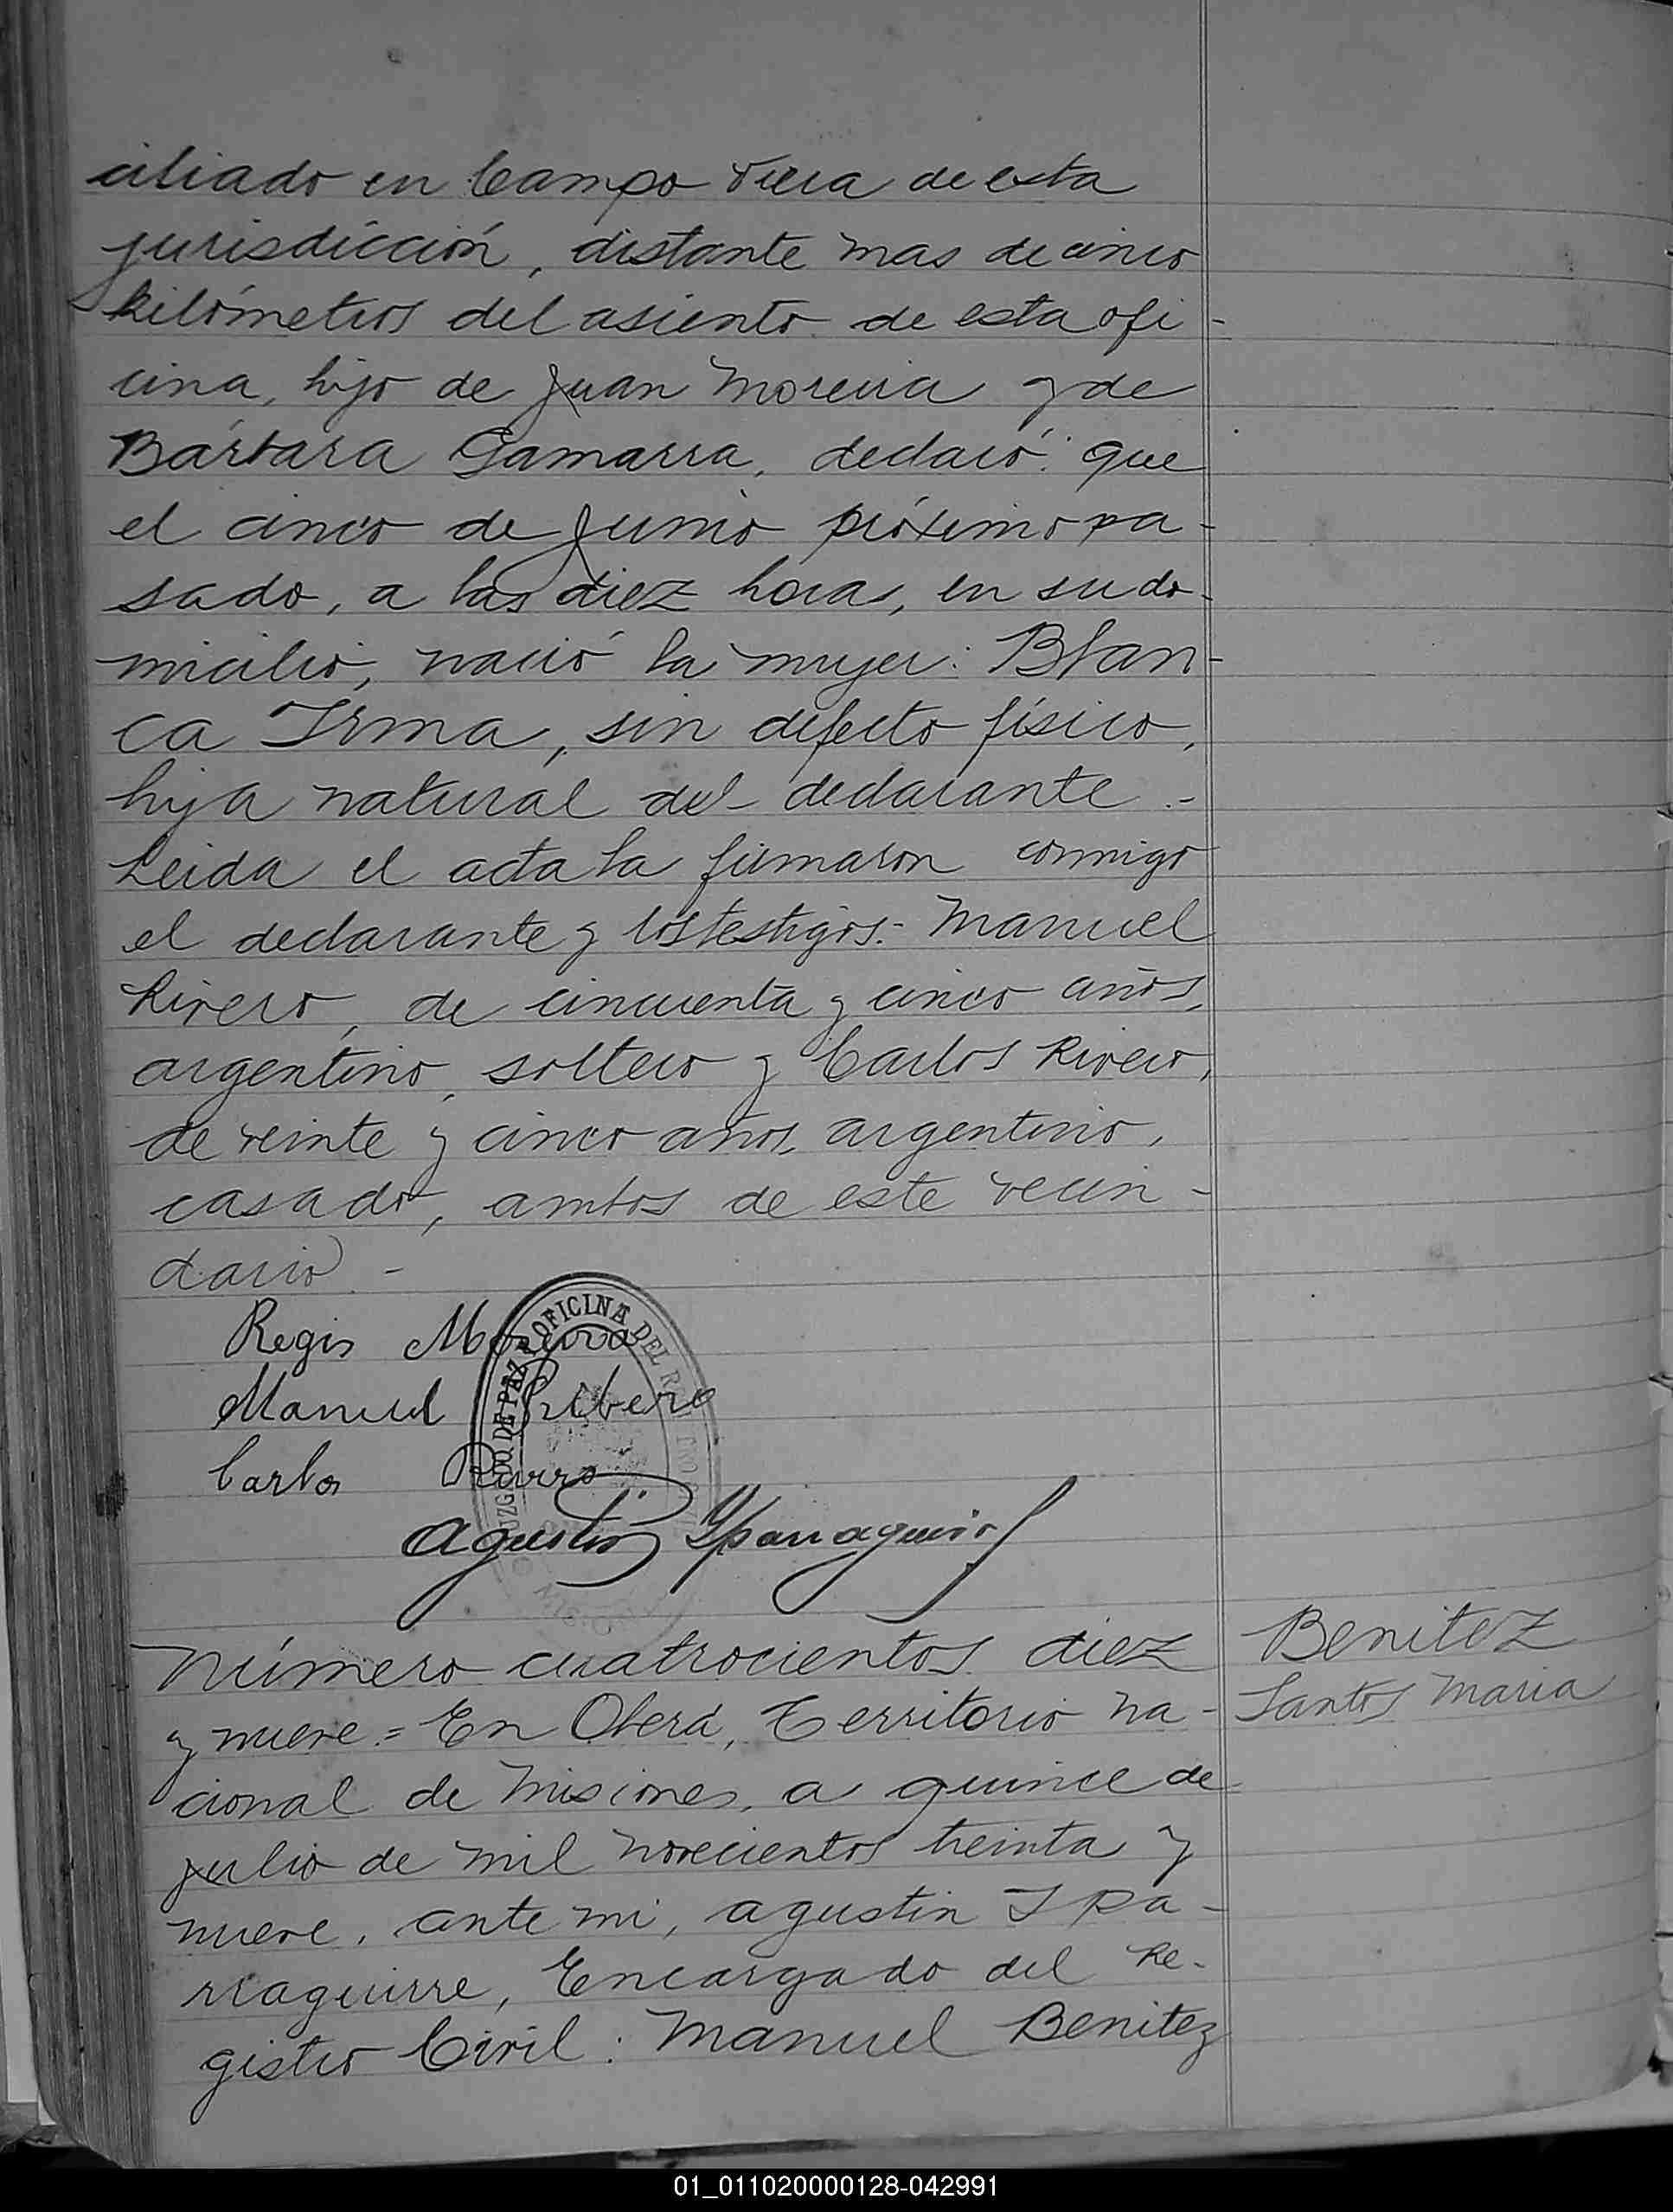 ciliado en Campo Viera de esta
jurisdicción, distante mas de cinco
kilómetros del asiento de esta ofi-
cina, hijo de Juan Moreira y de
Bárbara Gamarra, declaró: que
el cinco de Junio próximo pa-
sado, a las diez horas, en su do-
micilio, nació la mujer: Blan-
ca Irma, sin defecto físico,
hija natural del declarante.-
Leida el acta la firmaron conmigo
el declarante y los testigos:- Manuel
Rivero, de cincuenta y cinco años,
argentino, soltero y Carlos Rivero,
de veinte y cinco años, argentino,
casado, ambos de este vecin-
dario.-
Regis Moreira
Manuel Ribero
Carlos Rivero
JUZGADO DE PAZ Y OFICINA DEL REGISTRO CIVIL
Agustin Yparraguirre
Número cuatrocientos diez
y nueve.= En Oberá, Territorio na-
cional de Misiones, a quince de
julio de mil novecientos treinta y
nueve, ante mi, Agustin Ipa-
rraguirre, Encargado del Re-
gistro Civil: Manuel Benitez
Benitez
Santos Maria
01_011020000128-042991